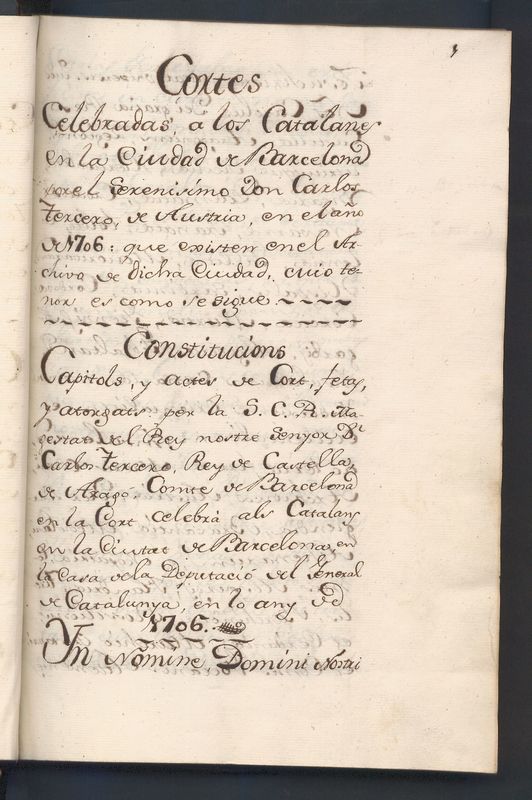 Cortes
Celebradas, a los Catalanes
en la Ciudad de Barcelona
por el Serenisimo Don Carlos
tercero, de Austria, en el año
de 1706: que existen en el Ar-
chivo de dicha Ciudad, cuio te-
nor es como se sigue.
Constitucions
Capitols, y actes de Cort, fetas,
y atorgats per la S. C. R. Ma-
gestat del Rey nostre Senyor Dn
Carlos tercero, Rey de Castella,
de Aragó, Comte de Barcelona
en la Cort celebrá als Catalans
en la Ciutat de Barcelona, en
la Casa de la Deputació del General
de Catalunya, en lo any de
1706.
In Nomine, Domini Nostri